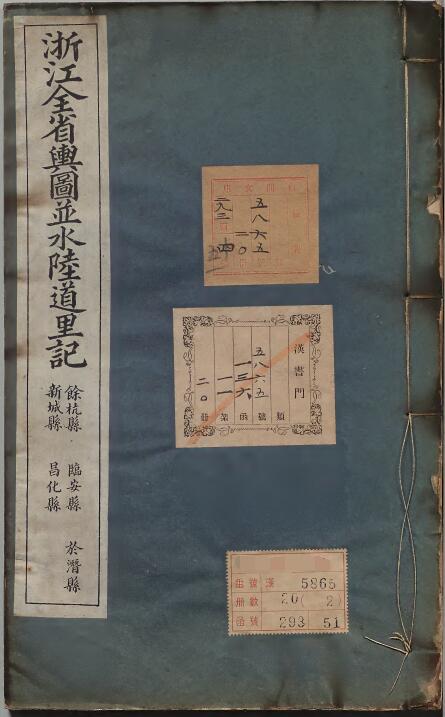 浙江全省輿圖並水陸道里記
餘杭縣 臨安縣 於潛縣
新城縣 昌化縣
五八六五
二〇
二九三
漢書門
類
號
函
架
冊
五八六五
一三六
一一
二〇
番號 漢 5865
冊數 20( 2)
函號 293 51